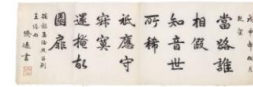 當路誰
相假
知音世
所稀
祗應守
寂寞
還掩故
園扉